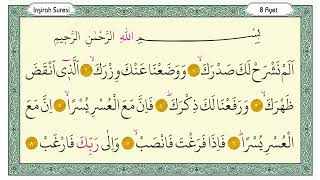 İnşirah Suresi 8 Ayet
بِسْمِ اللّٰهِ الرَّحْمٰنِ الرَّحِيمِ
اَلَمْ نَشْرَحْ لَكَ صَدْرَكَۙ ﴿١﴾ وَوَضَعْنَا عَنْكَ وِزْرَكَۙ ﴿٢﴾ اَلَّذٖٓى اَنْقَضَ
ظَهْرَكَۙ ﴿٣﴾ وَرَفَعْنَا لَكَ ذِكْرَكَۜ ﴿٤﴾ فَاِنَّ مَعَ الْعُسْرِ يُسْرًاۙ ﴿٥﴾ اِنَّ مَعَ
الْعُسْرِ يُسْرًاۜ ﴿٦﴾ فَاِذَا فَرَغْتَ فَانْصَبْۙ ﴿٧﴾ وَاِلٰى رَبِّكَ فَارْغَبْ ﴿٨﴾